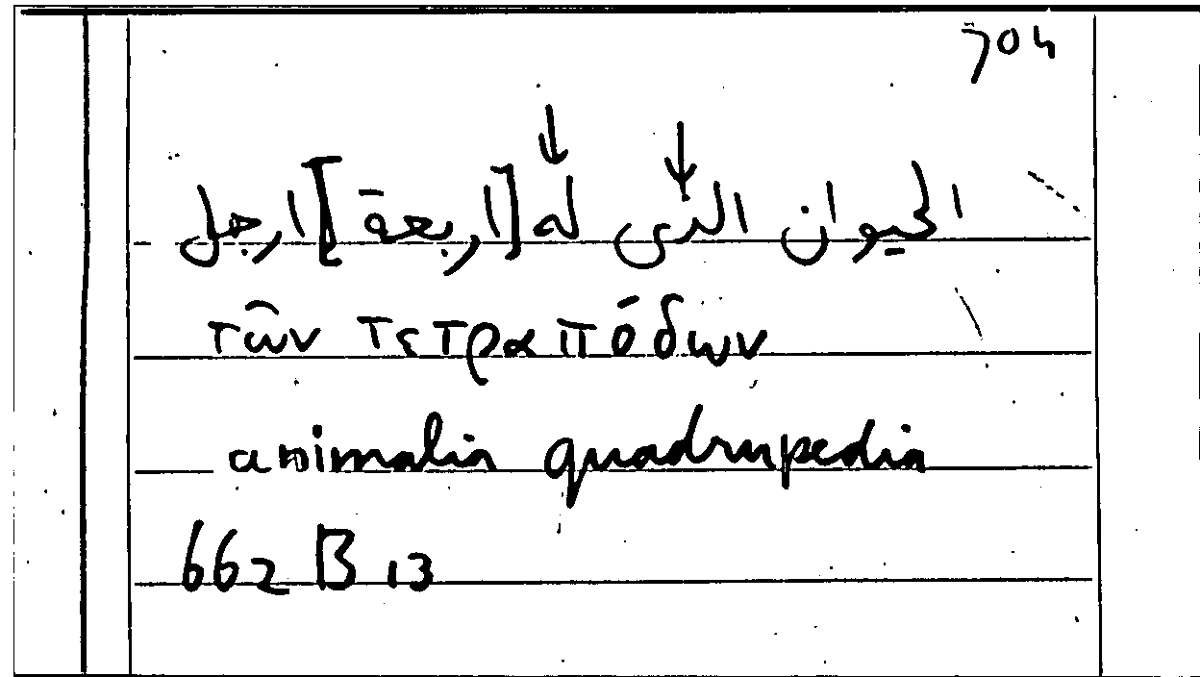 704
الحيوان التى له [اربعة] ارجل
τῶν τετραπόδων
animalia quadrupedia
662 B 13